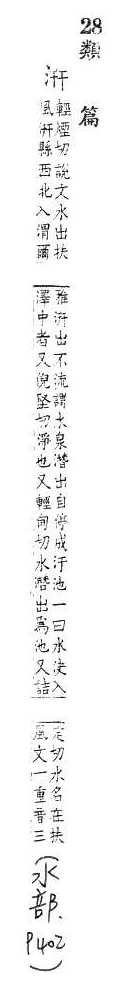 28
類篇
汧
輕煙切說文水出扶
風汧縣西北入渭爾
雅汧出不流謂水泉潛出自停成汙池一曰水決入
澤中者又倪堅切淨也又輕甸切水潛出爲池又詰
定切水名在扶
風文一重音三
(水部. P402)